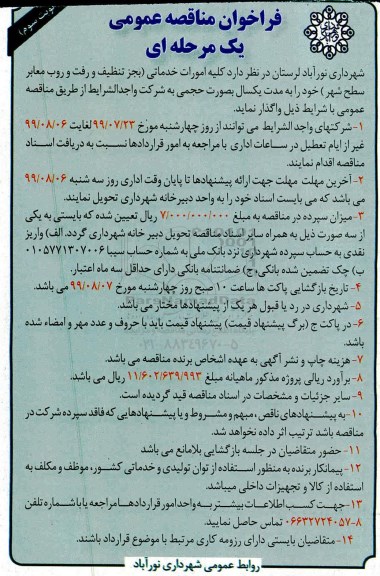 نوبت سوم
فراخوان مناقصه عمومی
یک مرحله ای
شهرداری نورآباد لرستان در نظر دارد کلیه امورات خدماتی (بجز تنظیف و رفت و روب معابر
سطح شهر) خود را به مدت یکسال بصورت حجمی به شرکت واجدالشرایط از طریق مناقصه
عمومی با شرایط ذیل واگذار نماید.
۱-شرکتهای واجد الشرایط می توانند از روز چهارشنبه مورخ ۹۹/۰۷/۲۳ لغایت ۹۹/۰۸/۰۶
غیر از ایام تعطیل در ساعات اداری با مراجعه به امور قراردادها نسبت به دریافت اسناد
مناقصه اقدام نمایند.
۲-آخرین مهلت مهلت جهت ارائه پیشنهادها تا پایان وقت اداری روز سه شنبه ۹۹/۰۸/۰۶
می باشد که می بایست اسناد خود را به واحد دبیرخانه شهرداری تحویل نمایند.
۳-میزان سپرده در مناقصه به مبلغ ۷/۰۰۰/۰۰۰/۰۰۰ ریال تعیین شده که بایستی به یکی
از سه صورت ذیل به همراه سایر اسناد مناقصه تحویل دبیر خانه شهرداری گردد. الف) واریز
نقدی به حساب سپرده شهرداری نزد بانک ملی به شماره حساب سیبا ۰۱۰۵۷۷۱۳۰۷۰۰۶
ب) چک تضمین شده بانکی،ج) ضمانتنامه بانکی دارای حداقل سه ماه اعتبار.
۴- تاریخ بازگشایی پاکت ها ساعت ۱۰ صبح روز چهارشنبه مورخ ۹۹/۰۸/۰۷ می باشد.
۵-شهرداری در رد یا قبول هر یک از پیشنهادها مختار می باشد.
۶-در پاکت ج (برگ پیشنهاد قیمت) پیشنهاد قیمت باید با حروف و عدد مهر و امضاء شده
باشد.
۷-هزینه چاپ و نشر آگهی به عهده اشخاص برنده مناقصه می باشد.
۸-برآورد ریالی پروژه مذکور ماهیانه مبلغ ۱۱/۶۰۲/۶۳۹/۹۹۳ ریال می باشد.
۹-سایر جزئیات و مشخصات در اسناد مناقصه قید گردیده است.
۱۰-به پیشنهادهای ناقص، مبهم و مشروط و یا پیشنهادهایی که فاقد سپرده شرکت در
مناقصه باشد ترتیب اثر داده نخواهد شد.
۱۱-حضور متقاضیان در جلسه بازگشایی بلامانع می باشد
۱۲-پیمانکار برنده به منظور استفاده از توان تولیدی و خدماتی کشور، موظف و مکلف به
استفاده از کالا و تجهیزات داخلی میباشد.
۱۳-جهت کسب اطلاعات بیشتر به واحد امور قراردادها مراجعه یا با شماره تلفن
۸-۰۶۶۳۲۷۲۴۰۵۷ تماس حاصل نمایید.
۱۴-متقاضیان بایستی دارای رزومه کاری مرتبط با موضوع قرارداد باشند.
روابط عمومی شهرداری نورآباد